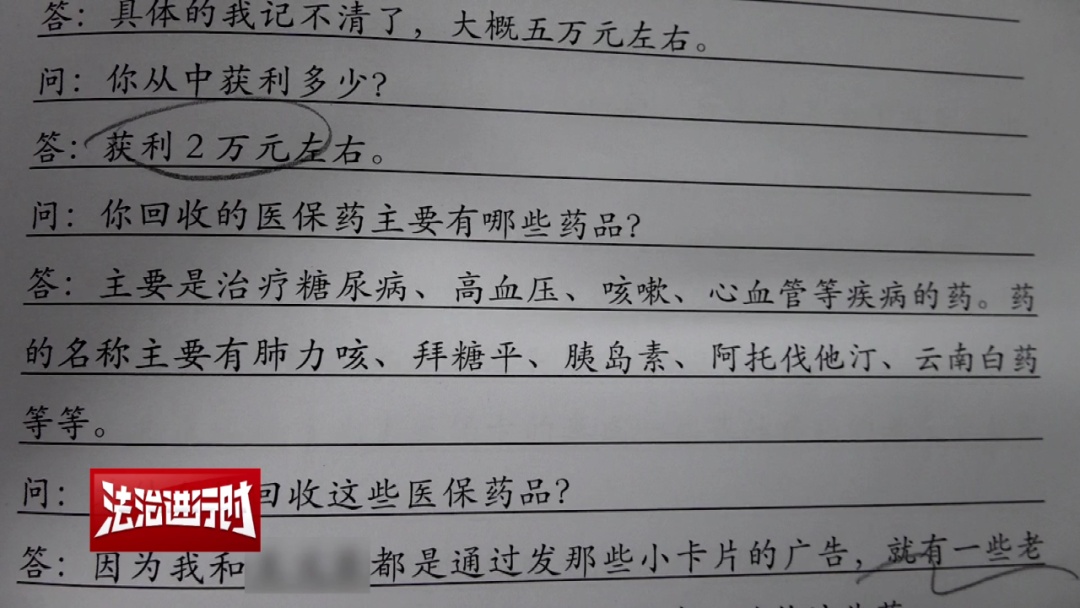 答：具体的我记不清了，大概五万元左右。
问：你从中获利多少？
答：获利2万元左右。
问：你回收的医保药主要有哪些药品？
答：主要是治疗糖尿病、高血压、咳嗽、心血管等疾病的药。药
的名称主要有肺力咳、拜糖平、胰岛素、阿托伐他汀、云南白药
等等。
问：
法治进行时
回收这些医保药品？
答：因为我和
都是通过发那些小卡片的广告，就有一些老